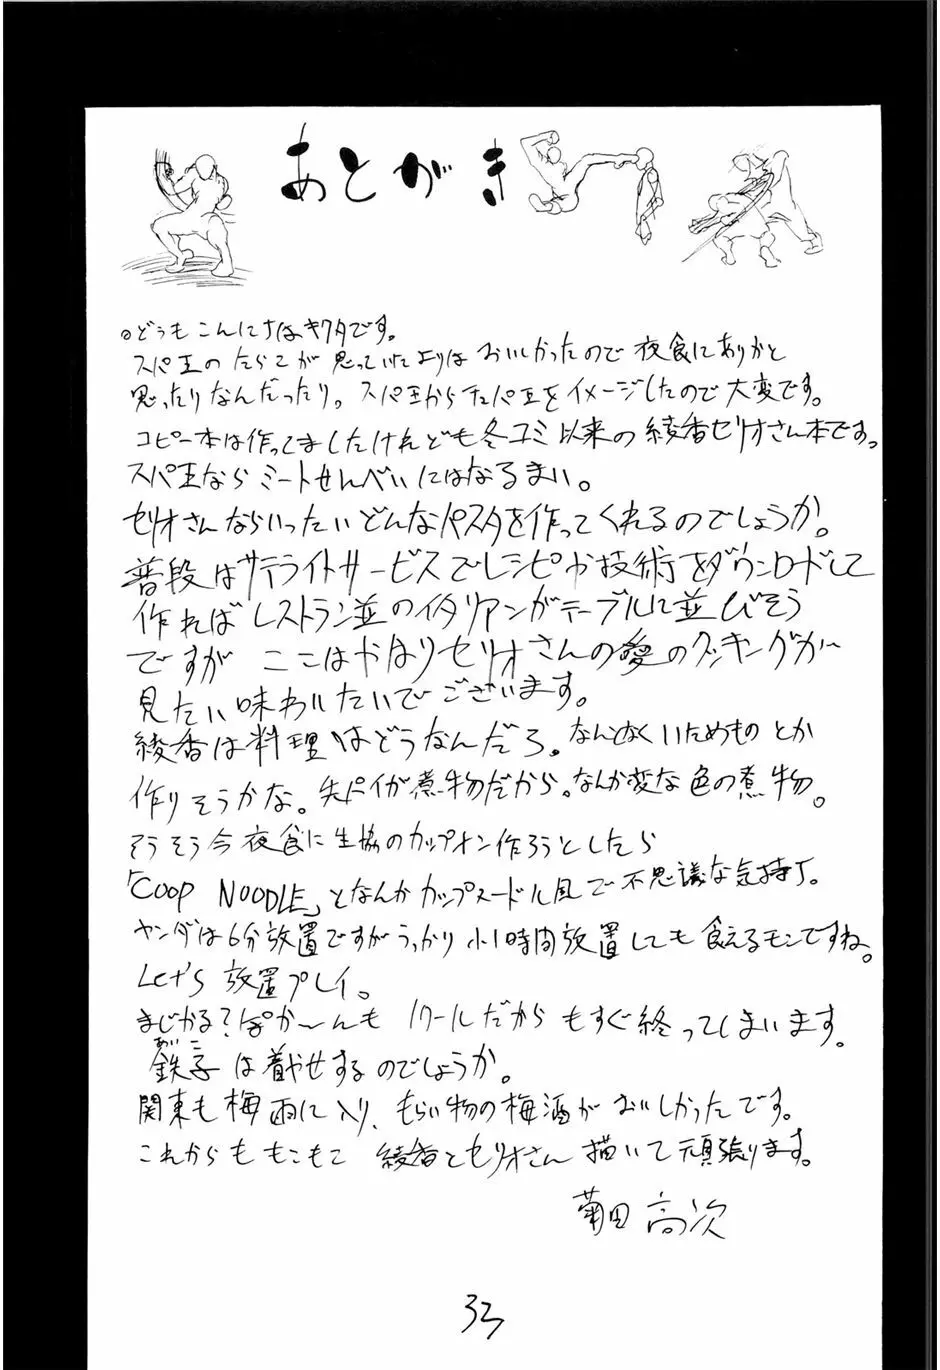 あとがき
○どうもこんにちはキクタです。
スパ王のたらこが思っていたよりはおいしかったので夜食にありかと
思ったりなんだったり。スパ王からたパ王をイメージしたので大変です。
コピー本は作ってましたけれども冬コミ以来の綾香セリオさん本です。
スパ王ならミートせんべいにはなるまい。
セリオさんならいったいどんなパスタを作ってくれるのでしょうか。
普段はサテライトサービスでレシピや技術をダウンロードして
作ればレストラン並のイタリアンがテーブルに並びそう
ですが ここはやはりセリオさんの愛のクッキングが
見たい味わいたいでございます。
綾香は料理はどうなんだろ。なんとなくいためものとか
作りそうかな。先パイが煮物だから。なんか変な色の煮物。
そうそう今夜食に生協のカップメン作ろうとしたら
「COOP NOODLE」となんかカップヌードル風で不思議な気持ち。
ヤンダは6分放置ですがうっかり小1時間放置しても食えるモンですね。
Let's 放置プレイ。
まじかる?ぽか〜んも 1クールだからもすぐ終ってしまいます。
鉄子は着やせするのでしょうか。
関東も梅雨に入り、もらい物の梅酒がおいしかったです。
これからももこもこ 綾香とセリオさん描いて頑張ります。
菊田 高次
33